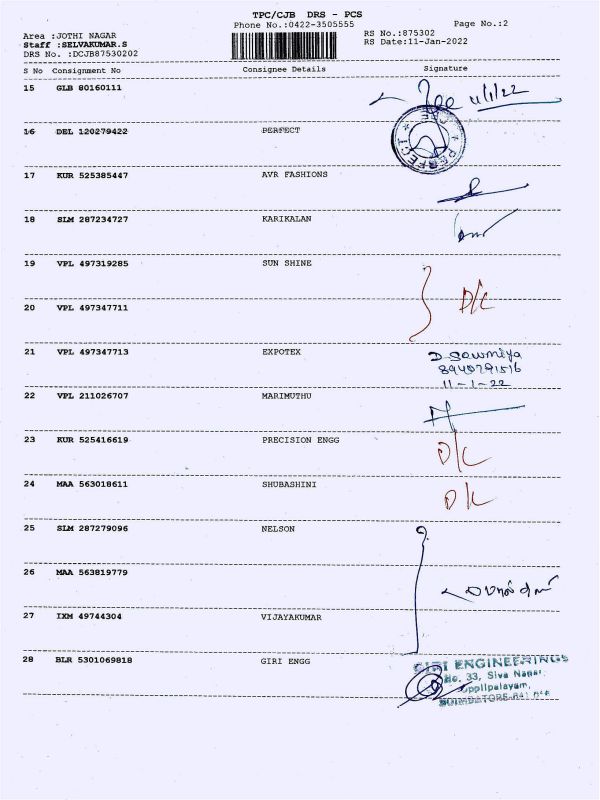 TPC/CJB DRS - PCS
Phone No.:0422-3505555
Page No.:2
Area :JOTHI NAGAR
Staff :SELVAKUMAR.S
DRS No. :DCJB87530202
RS No.:875302
RS Date:11-Jan-2022
S No Consignment No Consignee Details Signature
15 GLB 80160111 11/1/22
16 DEL 120279422 PERFECT
PERFECT
17 KUR 525385447 AVR FASHIONS
18 SLM 287234727 KARIKALAN
19 VPL 497319285 SUN SHINE
D/C
20 VPL 497347711
21 VPL 497347713 EXPOTEX D Sowmiya
8940791516
11-1-22
22 VPL 211026707 MARIMUTHU
23 KUR 525416619 PRECISION ENGG D/C
24 MAA 563018611 SHUBASHINI D/C
25 SLM 287279096 NELSON
26 MAA 563819779
27 IXM 49744304 VIJAYAKUMAR
28 BLR 5301069818 GIRI ENGG GIRI ENGINEERINGS
No. 33, Siva Nagar,
Uppilipalayam,
COIMBATORE-641 015